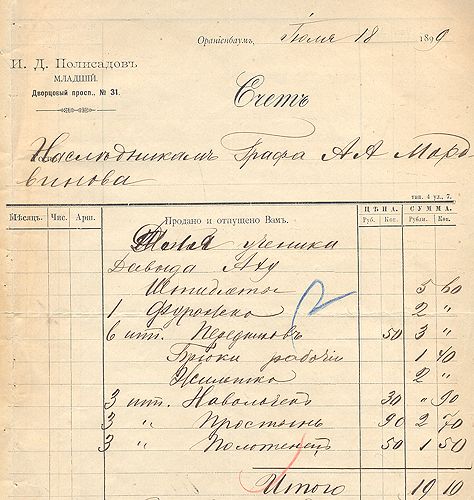 Ораніенбаумъ, Іюля 18 1899
И. Д. Полисадовъ
МЛАДШІЙ.
Дворцовый просп., № 31.
Счетъ
Наслѣдникамъ Графа А А Морд
винова
тип. 4 ул., 7.
Мѣсяцъ. Чис. Арш. Продано и отпущено Вамъ. ЦѢНА. СУММА.
Руб. Коп. Рубли. Коп.
ученика
Давыда
Штиблеты 5 60
1 Фуражка 2 "
6 шт. Передниковъ 50 3 "
Брюки рабочіи 1 40
Жилетка 2 "
3 шт. Наволочекъ 30 " 90
3 " Простынь 90 2 70
3 " Полотенецъ 50 1 50
Итого 19 10